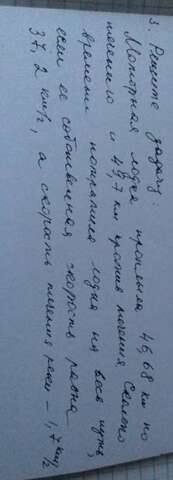 3. Решите задачу:
Моторная лодка проплыла 46,68 км по
течению и 49,7 км против течения. Сколько
времени потратила лодка на весь путь,
если ее собственная скорость равна
37,2 км/ч, а скорость течения реки - 1,7 км/ч